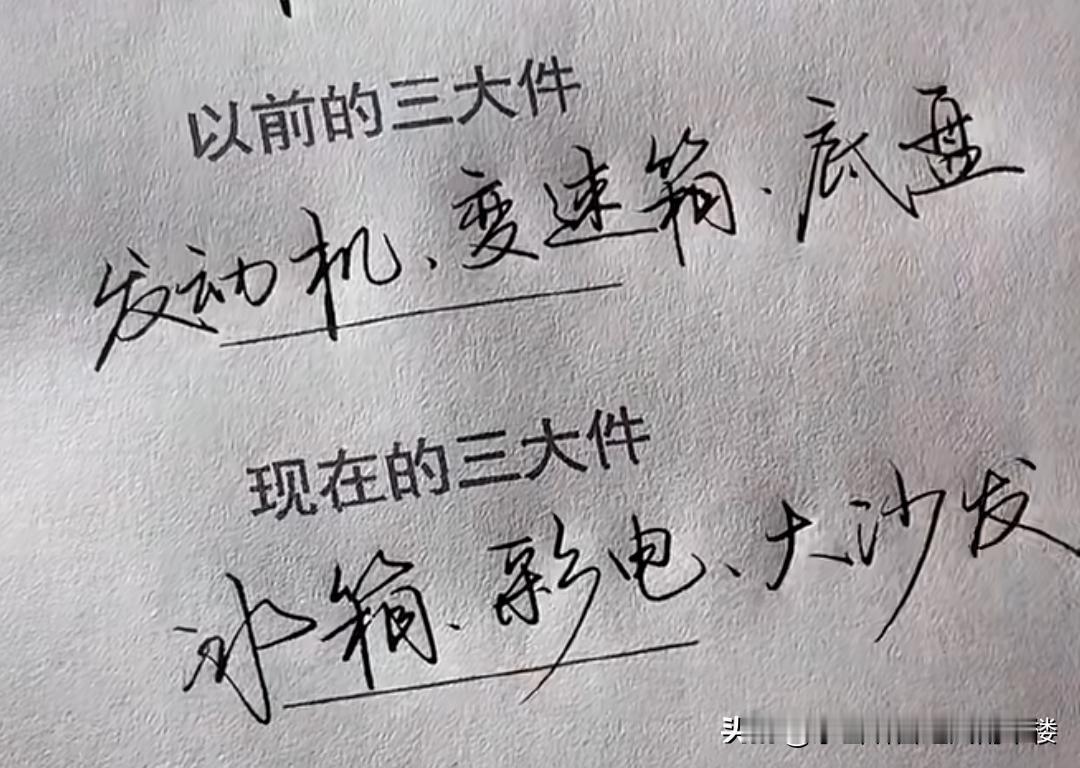 以前的三大件
发动机、变速箱、底盘
现在的三大件
冰箱、彩电、大沙发